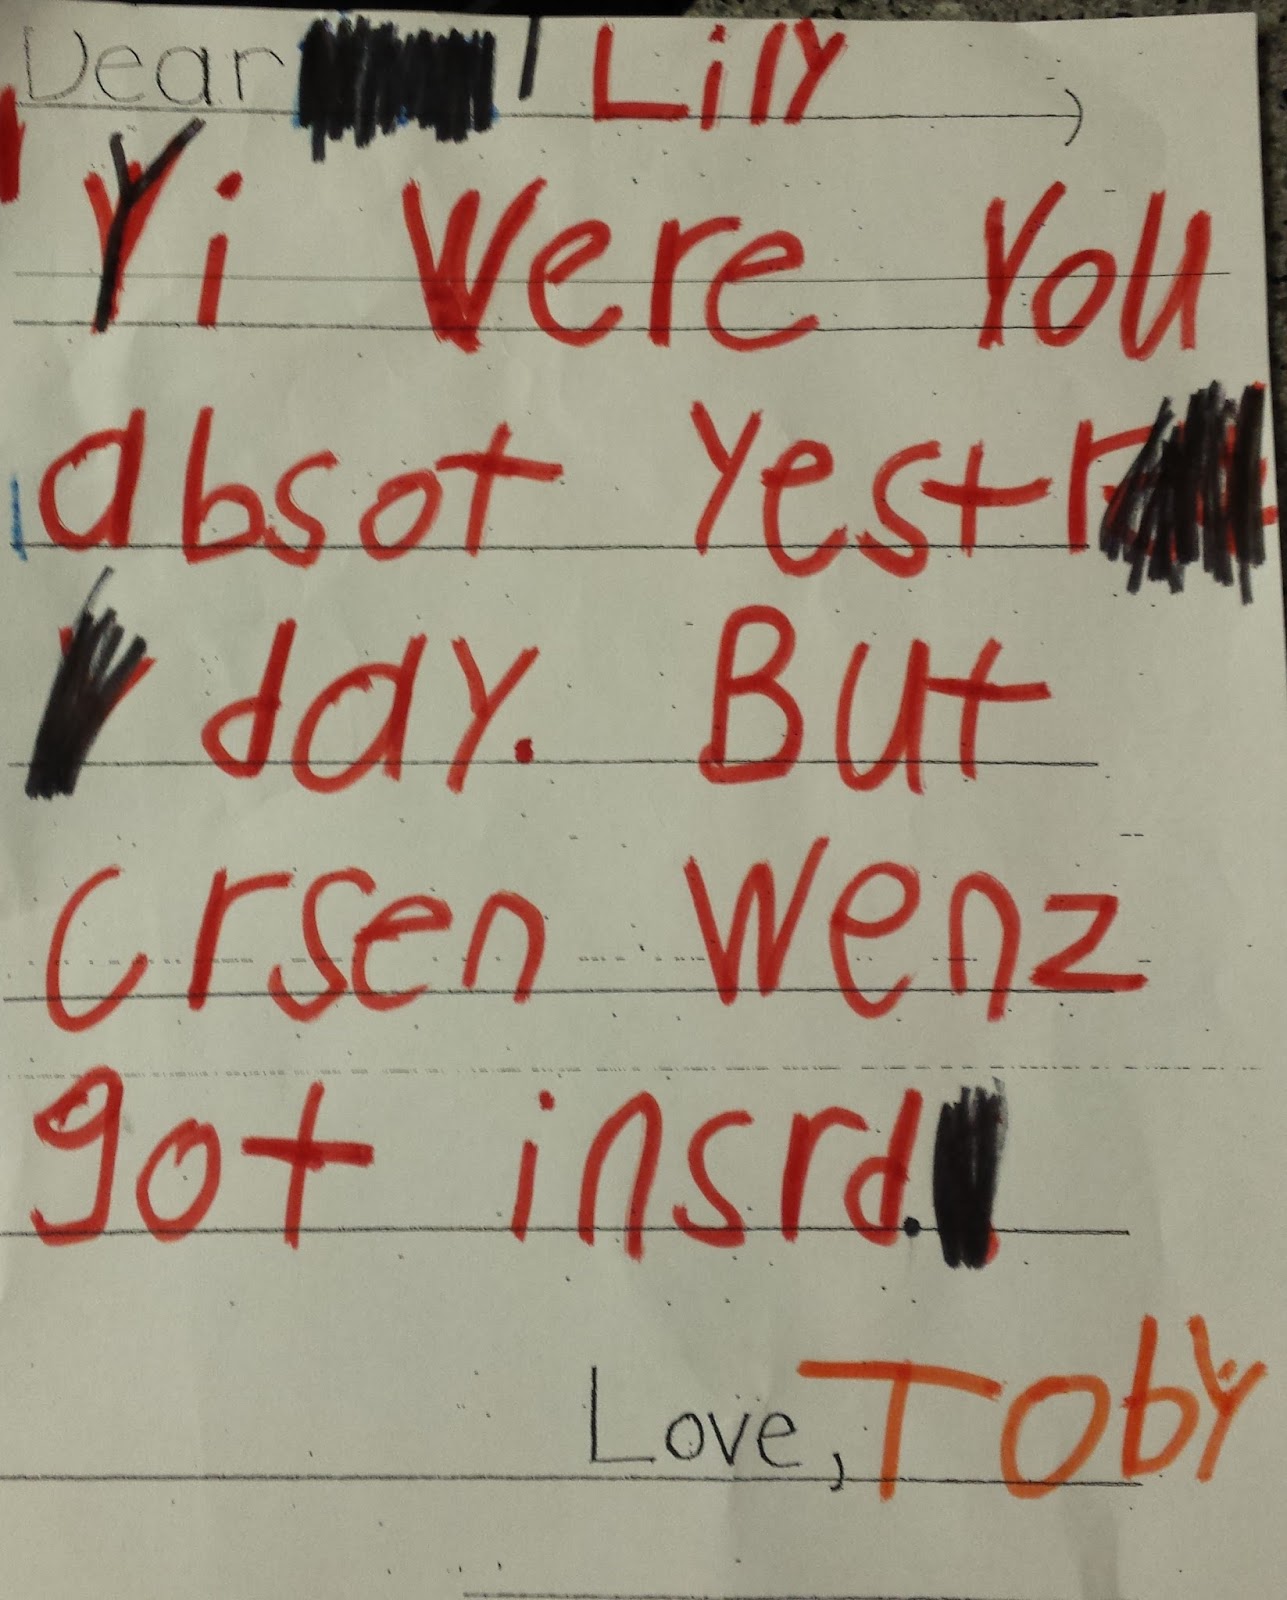 Dear Lily
Yi Were You
absot Yestr
day. But
crsen Wenz
got insrd.
Love, TObY